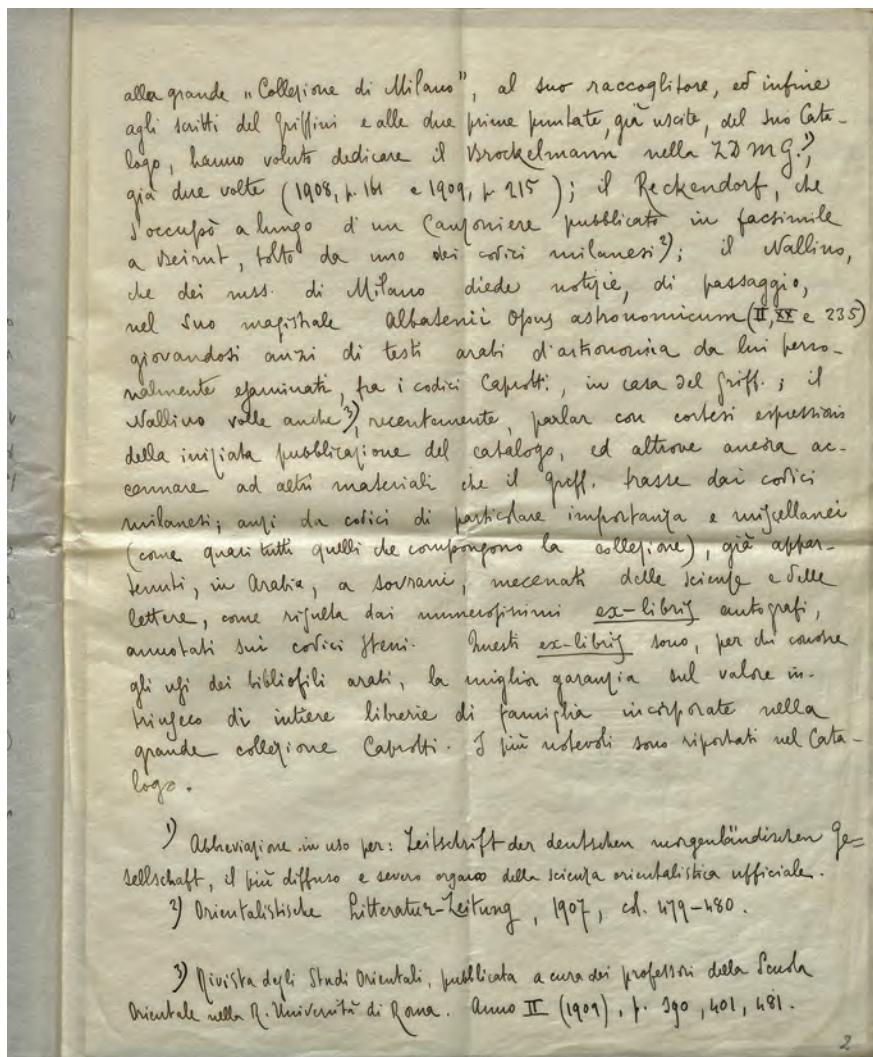 alla grande „Collezione di Milano", al suo raccoglitore, ed infine
agli scritti del Griffini e alle due prime puntate, già uscite, del suo Cata-
logo, hanno voluto dedicare il Brockelmann nella ZDMG.¹),
già due volte (1908, p. 161 e 1909, p. 215); il Reckendorf, che
s'occupò a lungo d'un Canzoniere pubblicato in facsimile
a Beirut, tolto da uno dei codici milanesi²); il Nallino,
che dei mss. di Milano diede notizie, di passaggio,
nel suo magistrale Albatenii Opus astronomicum (II, XX e 235)
giovandosi anzi di testi arabi d'astronomia da lui perso-
nalmente esaminati, fra i codici Caprotti, in casa del Griff.; il
Nallino volle anche³), recentemente, parlar con cortesi espressioni
della iniziata pubblicazione del catalogo, ed altrove ancora ac-
cennare ad altri materiali che il Griff. trasse dai codici
milanesi; anzi da codici di particolare importanza e miscellanei
(come quasi tutti quelli che compongono la collezione), già appar-
tenuti, in Arabia, a sovrani, mecenati delle scienze e delle
lettere, come risulta dai numerosissimi ex-libris autografi,
annotati sui codici stessi. Questi ex-libris sono, per chi conosce
gli usi dei bibliofili arabi, la miglior garanzia sul valore in-
trinseco di intiere librerie di famiglia incorporate nella
grande collezione Caprotti. I più notevoli sono riportati nel Cata-
logo.
¹) Abbreviazione in uso per: Zeitschrift der deutschen morgenländischen Ge=
sellschaft, il più diffuso e severo organo della scienza orientalistica ufficiale.
²) Orientalistische Litteratur-Zeitung, 1907, col. 479-480.
³) Rivista degli Studi Orientali, pubblicata a cura dei professori della Scuola
Orientale nella R. Università di Roma. Anno II (1909), p. 390, 401, 481.
2